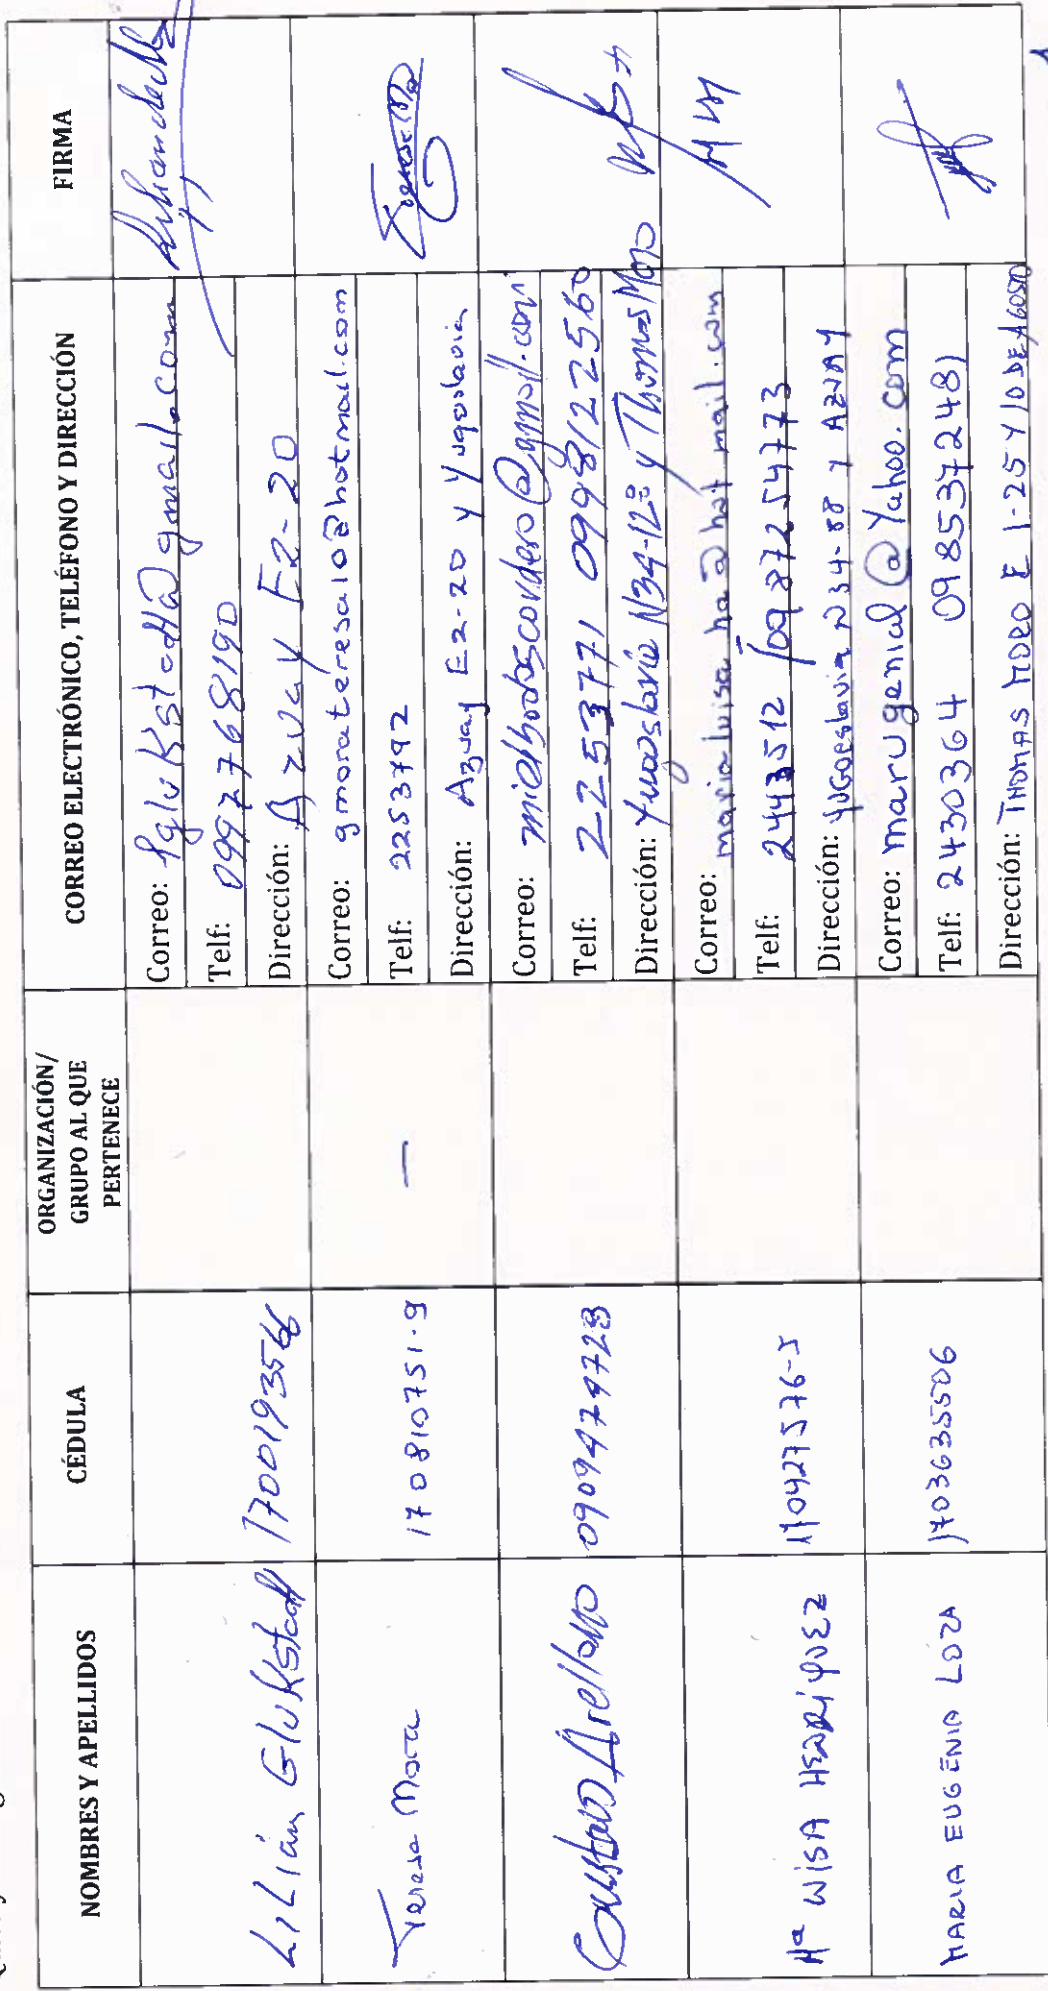 NOMBRES Y APELLIDOS
CÉDULA
ORGANIZACIÓN/
GRUPO AL QUE
PERTENECE
CORREO ELECTRÓNICO, TELÉFONO Y DIRECCIÓN
FIRMA
Lilián Glukstadt
1700193566
Correo: lglukstadt@gmail.com
Telf: 0997768190
Dirección: Azuay E2-20
Teresa Mora
170810751-9
—
Correo: gmorateresa10@hotmail.com
Telf: 2253792
Dirección: Azuay E2-20 y Yugoslavia
Teresa Mo
Gustavo Arellano
0909474728
Correo:
Telf: 2253771 0998122560
Dirección: Yugoslavia N34-128 y Thomas Moro
Mª LUISA HENRÍQUEZ
170427576-5
Correo: maria-luisa ha@hotmail.com
Telf: 2443512 / 0987254773
Dirección: YUGOESLAVIA N34-88 Y AZUAY
MARIA EUGENIA LOZA
1703635506
Correo: marugenial@Yahoo.com
Telf: 2430364 0985372481
Dirección: THOMAS MORO E 1-25 Y 10 DE AGOSTO